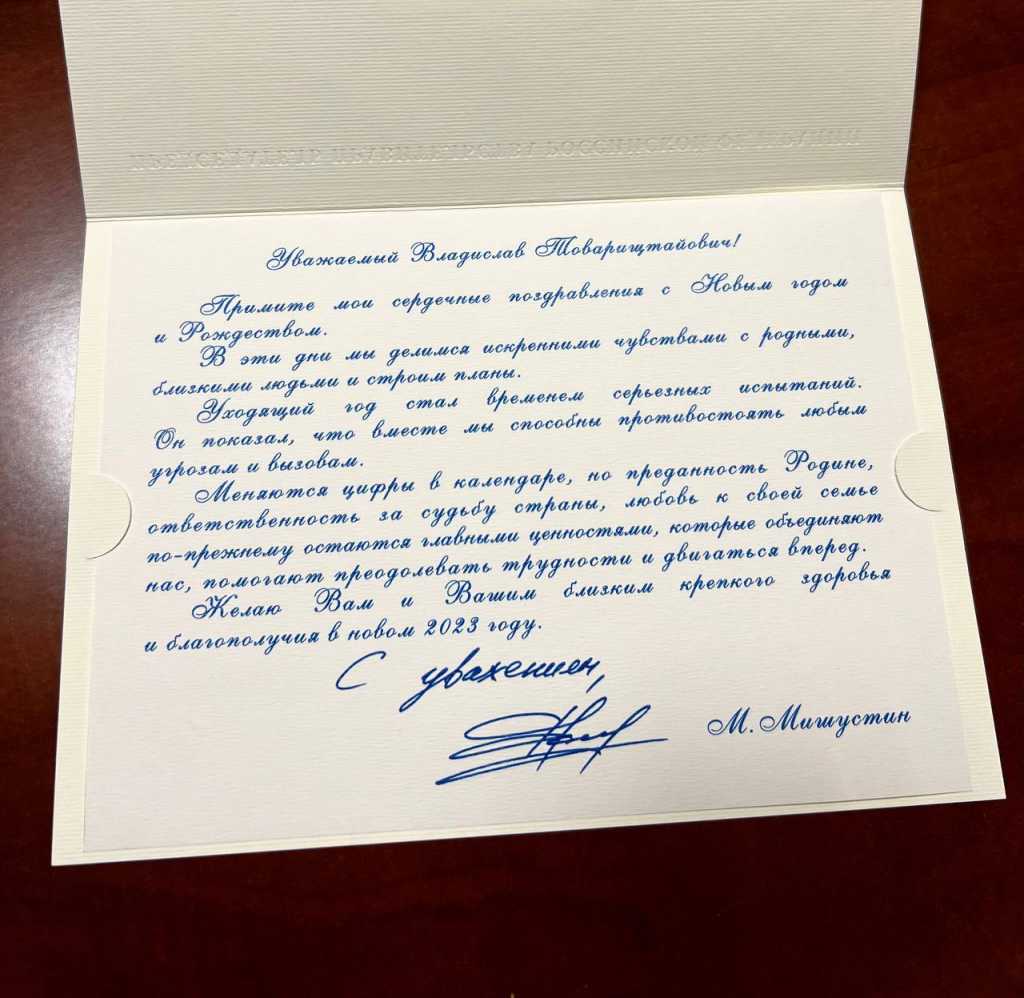 ПРЕДСЕДАТЕЛЬ ПРАВИТЕЛЬСТВА РОССИЙСКОЙ ФЕДЕРАЦИИ
Уважаемый Владислав Товарищтайович!
Примите мои сердечные поздравления с Новым годом
и Рождеством.
В эти дни мы делимся искренними чувствами с родными,
близкими людьми и строим планы.
Уходящий год стал временем серьезных испытаний.
Он показал, что вместе мы способны противостоять любым
угрозам и вызовам.
Меняются цифры в календаре, но преданность Родине,
ответственность за судьбу страны, любовь к своей семье
по-прежнему остаются главными ценностями, которые объединяют
нас, помогают преодолевать трудности и двигаться вперед.
Желаю Вам и Вашим близким крепкого здоровья
и благополучия в новом 2023 году.
С уважением,
М. Мишустин